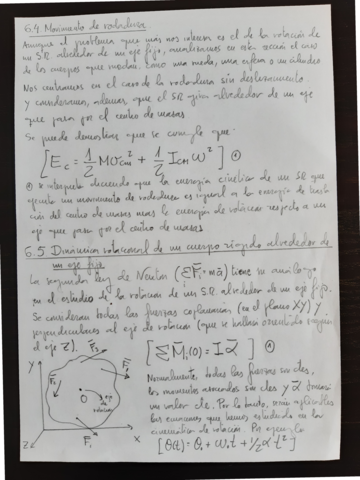 6.4. Movimiento de rodadura
Aunque el problema que más nos interesa es el de la rotación de
un S.R. alrededor de un eje fijo, analizaremos en esta sección el caso
de los cuerpos que ruedan, como una rueda, una esfera o un cilindro
Nos centramos en el caso de la rodadura sin deslizamiento
y consideramos, además, que el S.R. gira alrededor de un eje
que pasa por el centro de masas
Se puede demostrar que se cumple que:
[Ec = 1/2 MVcm² + 1/2 Icm ω²] ①
① se interpreta diciendo que la energía cinética de un SR que
ejecuta un movimiento de rodadura es igual a la energía de trasla
ción del centro de masas más la energía de rotación respecto a un
eje que pasa por el centro de masas
6.5 Dinámica rotacional de un cuerpo rígido alrededor de
un eje fijo
La segunda ley de Newton (ΣF̄i = mā) tiene su análogo
en el estudio de la rotación de un S.R. alrededor de un eje fijo.
Se consideran todas las fuerzas coplanarias (en el plano XY) y
perpendiculares al eje de rotación (que se hallan orientado según
el eje Z).
[ΣM̄i(o) = Iᾱ] ①
Y
F̄3
F̄2
O
eje
rotación
F̄1
X
Z
Normalmente, todas las fuerzas son ctes,
los momentos asociados son ctes y ᾱ tomará
un valor cte. Por lo tanto, serán aplicables
las ecuaciones que hemos estudiado en la
cinemática de rotación. Por ejemplo
[θ(t) = θ0 + ω0t + 1/2 αt²]